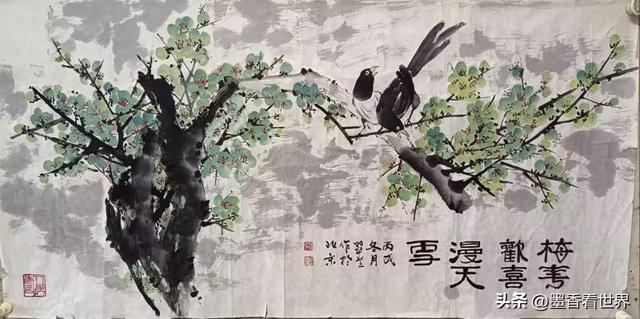 梅花
歡喜
漫天
雪
丙戌
冬月
作於
北京
头条 @墨香看世界